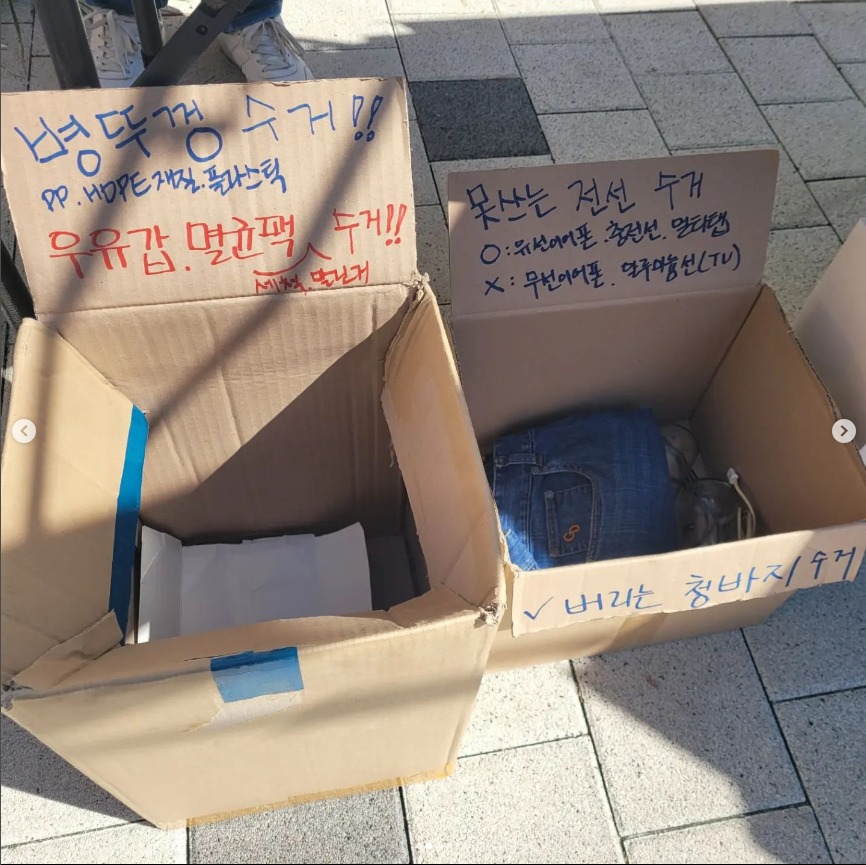 병뚜껑 수거!!
PP. HDPE 재질. 플라스틱
우유갑. 멸균팩 수거!!
세척, 말린거
못쓰는 전선 수거
O: 유선이어폰. 충전선. 멀티탭
X: 무선이어폰. 알루미늄선(TV)
✓ 버리는 청바지 수거